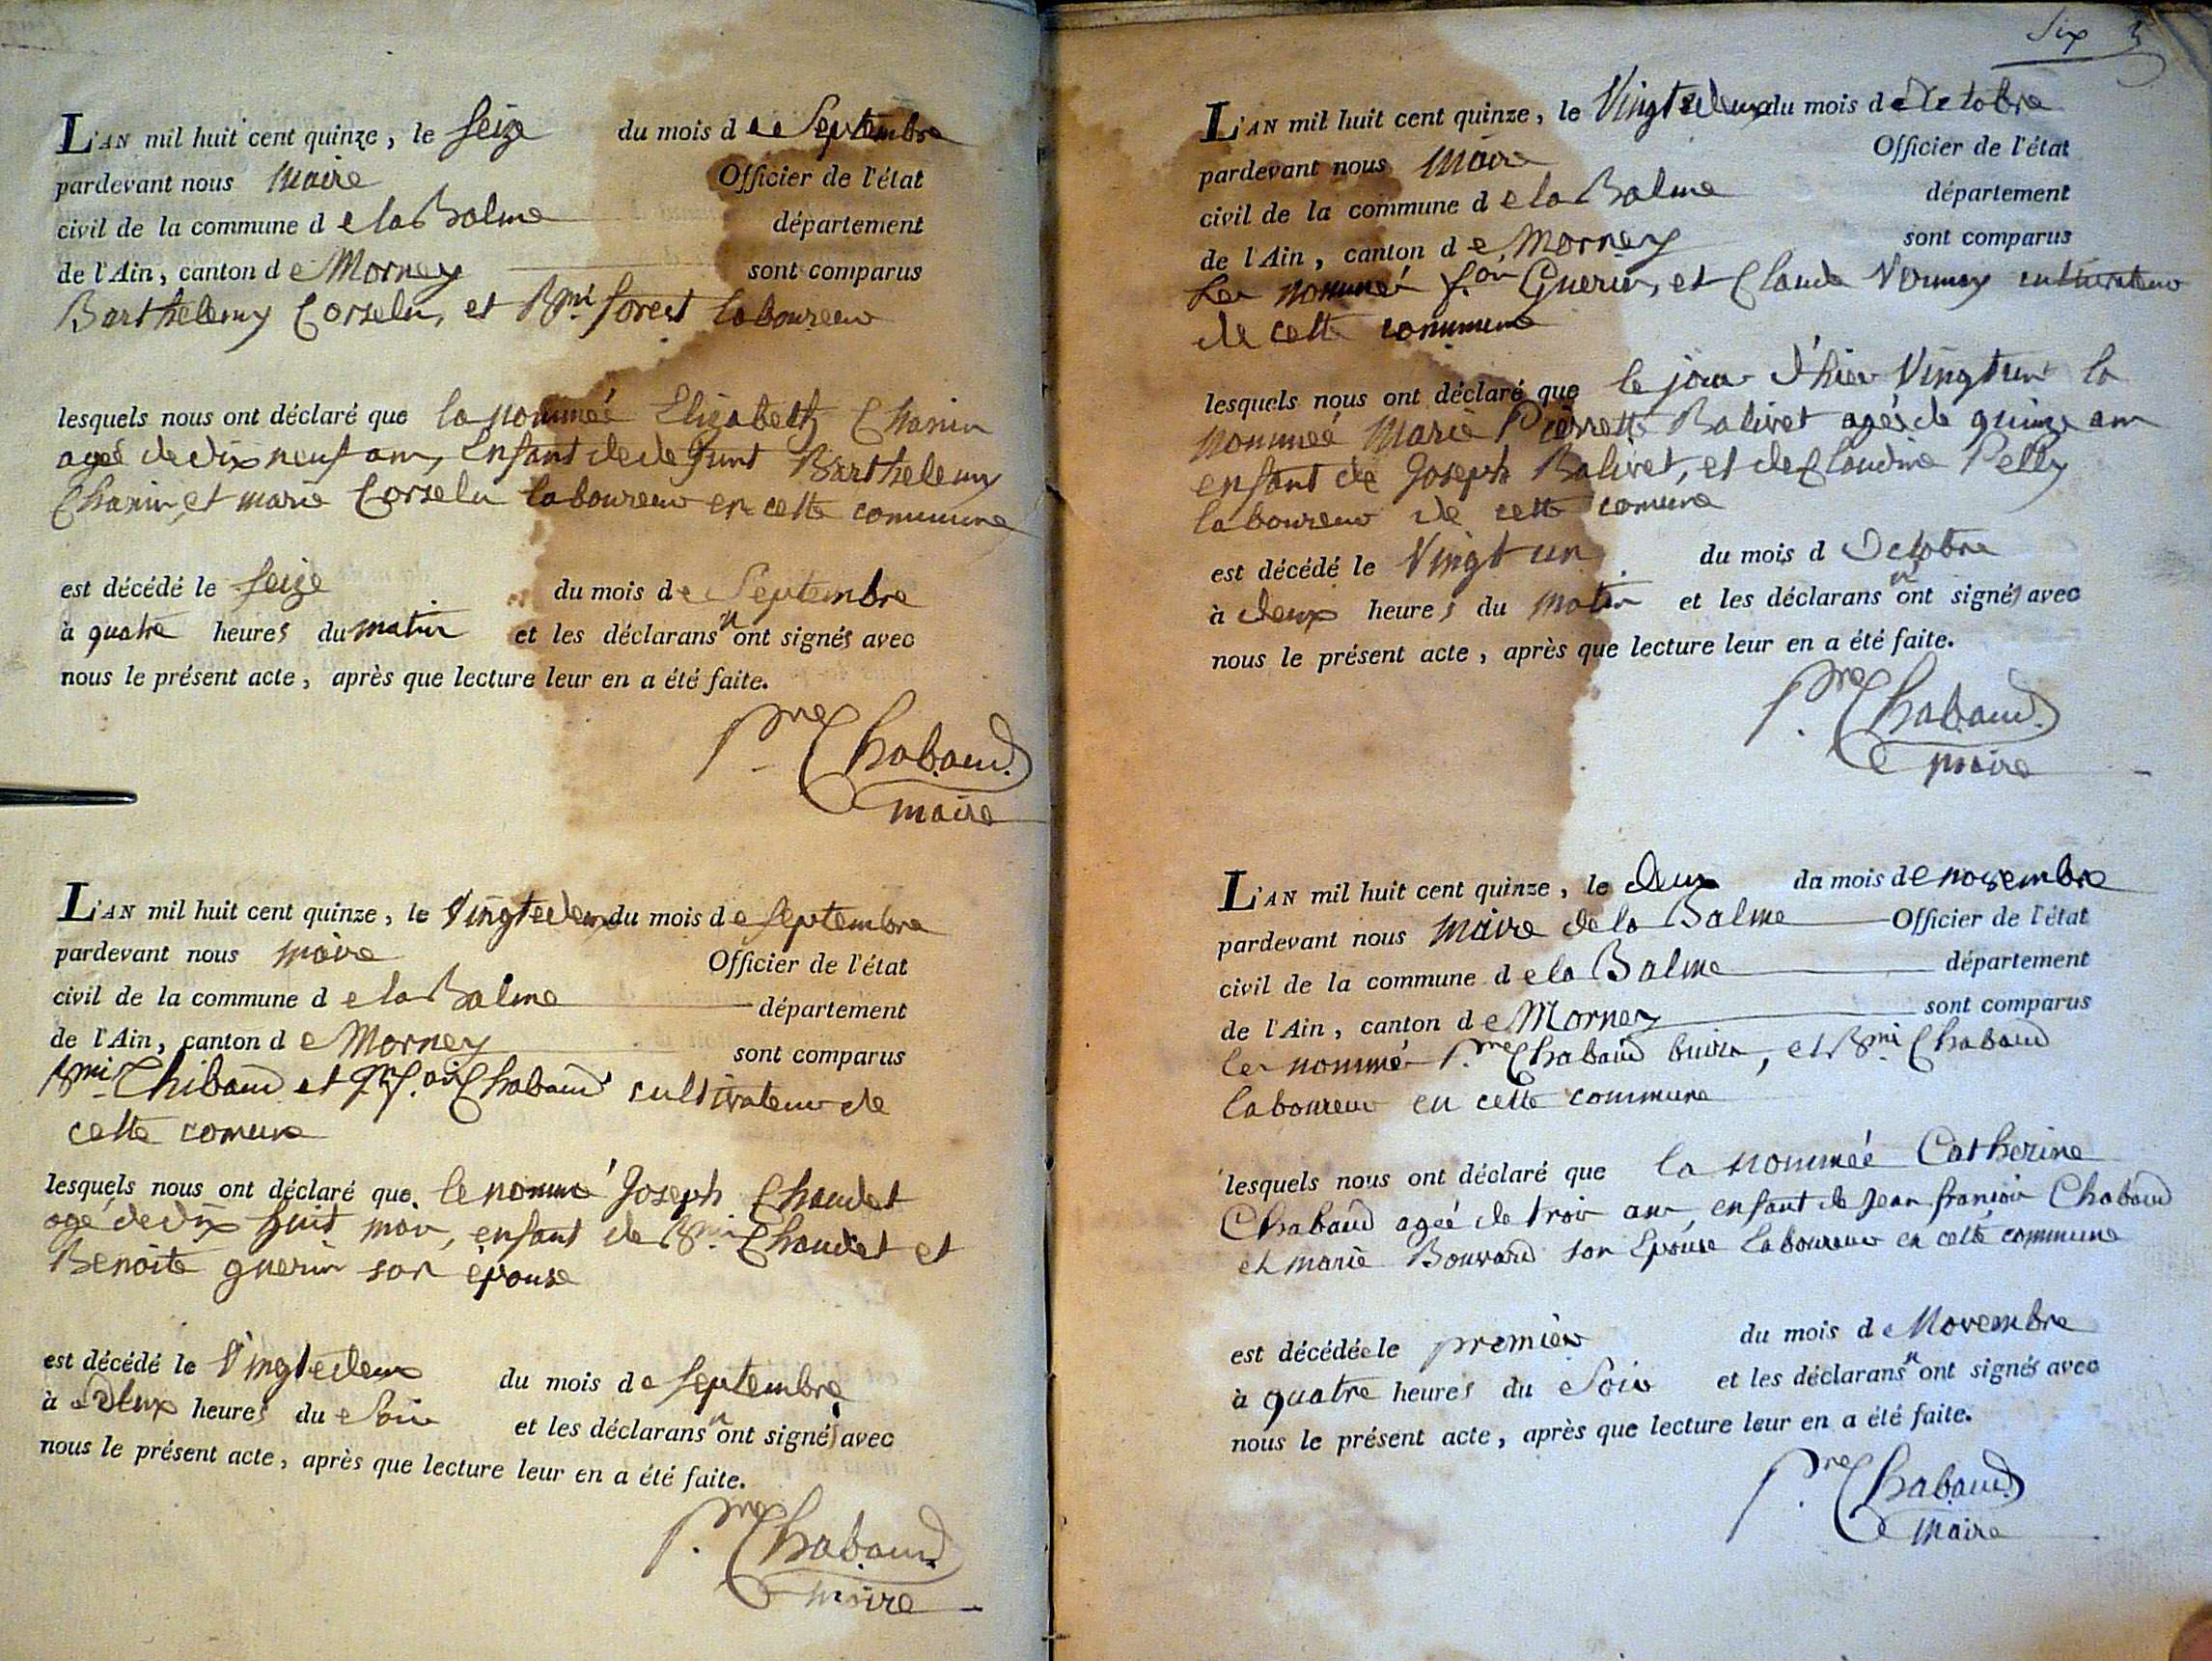 L'AN mil huit cent quinze, le seize du mois de Septembre
pardevant nous Maire Officier de l'état
civil de la commune d e la Balme département
de l'Ain, canton d e Mornay sont comparus
Barthelemy Corselu, et Bmi forest laboureur
lesquels nous ont déclaré que la nommeé Elizabeth Chanin
ageé de dix neuf ans, Enfant de defunt Barthelemy
Chanin, et marie Corselu laboureur en cette commune
est décédé le seize du mois de Septembre
à quatre heures du matin et les déclarans n'ont signés avec
nous le présent acte, après que lecture leur en a été faite.
Pre Chabaud
maire
L'AN mil huit cent quinze, le Vingtedeux du mois de Septembre
pardevant nous maire Officier de l'état
civil de la commune d e la Balme département
de l'Ain, canton d e Mornay sont comparus
Bmi Chibaud et Chabaud cultivateur de
cette comune
lesquels nous ont déclaré que le nommé Joseph Chaudet
agé de dix huit moi, enfant de Bmi Chaudet et
Benoite guerin son epouse
est décédé le Vingtedeux du mois de Septembre
à Deux heures du Soir et les déclarans n'ont signés avec
nous le présent acte, après que lecture leur en a été faite.
Pre Chabaud
maire
Six
L'AN mil huit cent quinze, le Vingtedeux du mois d'Octobre
pardevant nous Maire Officier de l'état
civil de la commune d e la Balme département
de l'Ain, canton d e Mornay sont comparus
Les nommés f.ois Guerin, et Claude Vernay cultivateur
de cette commune
lesquels nous ont déclaré que le jour d'hier Vingtun la
nommeé Marie Pierrette Balivet ageé de quinze ans
enfant de Joseph Balivet, et de Claudine Pelly
laboureur de cette comune
est décédé le Vingt un du mois d Octobre
à deux heures du Matin et les déclarans n'ont signés avec
nous le présent acte, après que lecture leur en a été faite.
Pre Chabaud
maire
L'AN mil huit cent quinze, le deux du mois de novembre
pardevant nous Maire de la Balme Officier de l'état
civil de la commune d e la Balme département
de l'Ain, canton d e Mornay sont comparus
les nommé Pre Chabaud, et Bmi Chabaud
laboureur en cette commune
lesquels nous ont déclaré que la nommeé Catherine
Chabaud ageé de trois ans enfant de Jean françois Chabaud
et marie Bouvard son Epouse laboureur en cette commune
est décédée le premier du mois de Novembre
à quatre heures du Soir et les déclarans n'ont signés avec
nous le présent acte, après que lecture leur en a été faite.
Pre Chabaud
maire